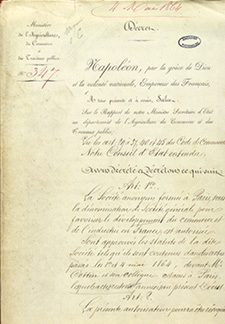 4 Mai 1864
Décret
Ministère
de l'Agriculture,
du Commerce
et des
Travaux publics
N° 547
Napoléon, par la grâce de Dieu
et la volonté nationale, Empereur des Français,
A tous présents et à venir, Salut.
Sur le Rapport de notre Ministre Secrétaire d'État
au département de l'Agriculture, du Commerce et des
Travaux publics
Vu les art. 29 à 37, 40 et 45 du Code de Commerce
Notre Conseil d'Etat entendu
Avons décrété et décrétons ce qui suit
Art. 1er
La Société anonyme formée à Paris sous
la dénomination de Société générale pour
favoriser le développement du commerce et
de l'industrie en France, est autorisée.
Sont approuvés les statuts de la dite
Société tels qu'ils sont contenus dans l'acte
passé les 1er et 4 mai 1864 devant Me
et son collègue notaires à Paris,
lequel acte restera annexé au présent Décret
Art. 2
La présente autorisation pourra être révoquée